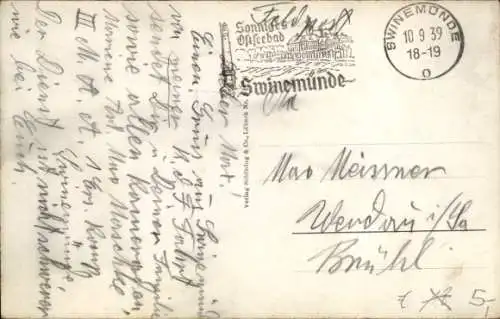 Feldpost
Sonniges
Ostseebad
Swinemünde
SWINEMÜNDE
10 9 39
18-19
o
An
Max Meissner
Werdau i/Sa
Brühl
5,-
Lieber Max!
Einen Gruß aus Swinemünde
von meiner K.d.F. Fahrt
sendet Dir u. Deiner Familie
sowie allen Kameraden
Marine Art. Max
III. M. A. A. 1
Swinemünde
Der Dienst ist nicht schwerer
wie bei Euch.
Verlag Schöning & Co., Lübeck